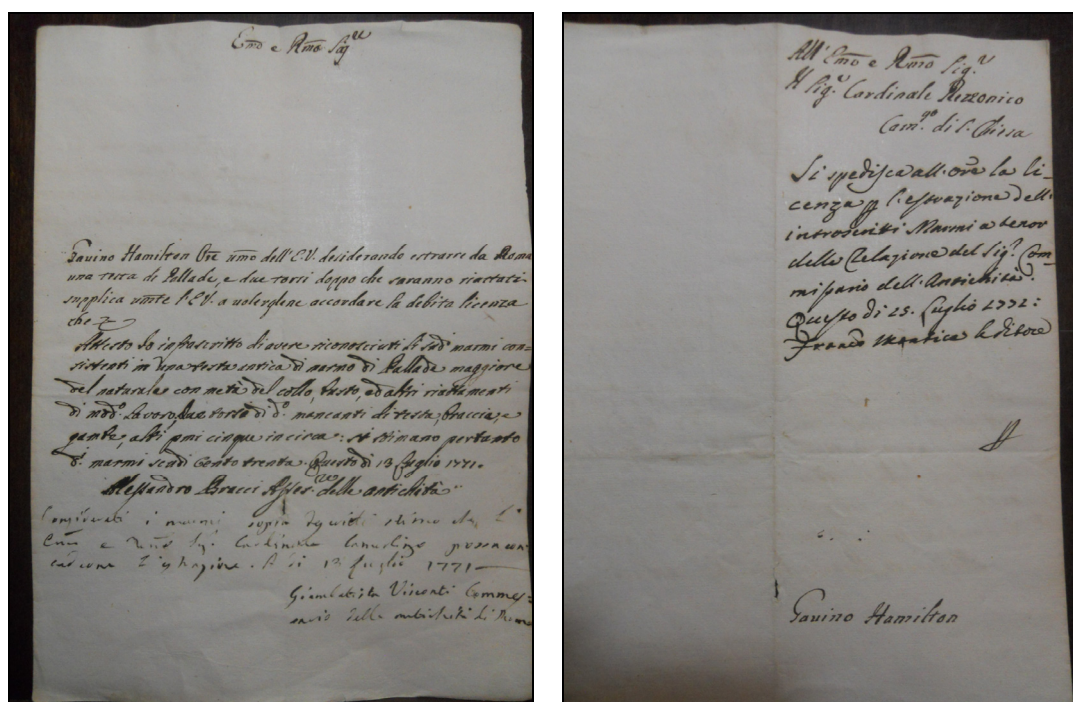 Emo e Rmo Sigre
Gavino Hamilton Ore umo dell'E.V. desiderando estrarre da Roma
una testa di Pallade, e due torsi doppo che saranno riattati
supplica umte l'E.V. a volergliene accordare la debita licenza
che
Attesto Io infrascritto di avere riconosciuti li sudi marmi con-
sistenti in una testa antica di marmo di Pallade maggiore
del naturale con metà del collo, busto, ed altri riattamenti
di modo lavoro, due torsi di do mancanti di testa, braccia, e
gambe, alti pmi cinque in circa: si stimano pertanto
di marmi scudi cento trenta. Questo dì 13 Luglio 1771.
Alessandro Bracci Assesre delle antichità
i marmi sopra stimo che l'
Emo e Rmo Sig. Cardinale possa con
l'estrazione. A dì 13 Luglio 1771
Giambattista Visconti Commes-
sario delle antichità di Roma
All'Emo e Rmo Sig.r
Il Sig.r Cardinale Rezzonico
Camgo di S. Chiesa
Si spedisca all'Ore la li-
cenza p l'estrazione dell'
introscritti Marmi a tenor
della Relazione del Sigr Com-
missario dell'Antichità.
Questo dì 25. Luglio 1771:
Franco Mantica Uditore
Gavino Hamilton